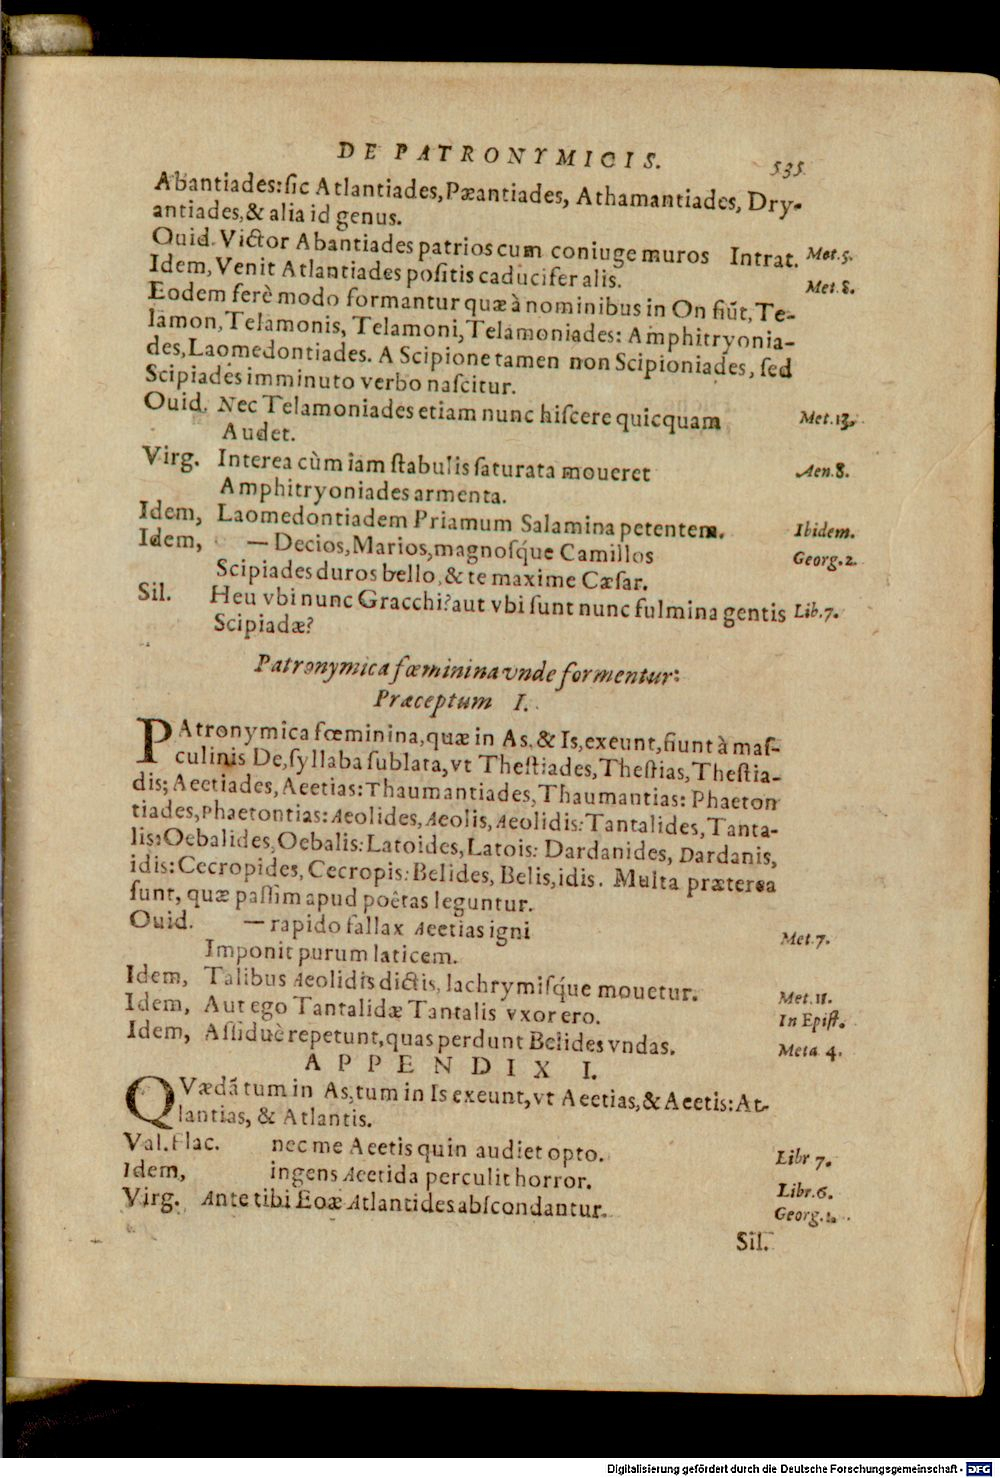 DE PATRONYMICIS. 535
Abantiades: sic Atlantiades, Pæantiades, Athamantiades, Dry-
antiades, & alia id genus.
Ouid. Victor Abantiades patrios cum coniuge muros Intrat. Met. 5.
Idem, Venit Atlantiades positis caducifer alis. Met. 8.
Eodem ferè modo formantur quæ à nominibus in On fiũt, Te-
lamon, Telamonis, Telamoni, Telamoniades: Amphitryonia-
des, Laomedontiades. A Scipione tamen non Scipioniades, sed
Scipiades imminuto verbo nascitur.
Ouid. Nec Telamoniades etiam nunc hiscere quicquam Met. 13.
Audet.
Virg. Interea cùm iam stabulis saturata moueret Aen. 8.
Amphitryoniades armenta.
Idem, Laomedontiadem Priamum Salamina petentem. Ibidem.
Idem, — Decios, Marios, magnosq́ue Camillos Georg. 2.
Scipiades duros bello, & te maxime Cæsar.
Sil. Heu vbi nunc Gracchi? aut vbi sunt nunc fulmina gentis Lib. 7.
Scipiadæ?
Patronymica fœminina vnde formentur:
Præceptum I.
PAtronymica fœminina, quæ in As, & Is, exeunt, fiunt à mas-
culinis De, syllaba sublata, vt Thestiades, Thestias, Thestia-
dis; Aeetiades, Aeetias: Thaumantiades, Thaumantias: Phaeton
tiades, Phaetontias: Aeolides, Aeolis, Aeolidis: Tantalides, Tanta-
lis: Oebalides, Oebalis: Latoides, Latois: Dardanides, Dardanis,
idis: Cecropides, Cecropis: Belides, Belis, idis. Multa præterea
sunt, quæ passim apud poêtas leguntur.
Ouid. — rapido fallax Aeetias igni Met. 7.
Imponit purum laticem.
Idem, Talibus Aeolidis dictis, lachrymisq́ue mouetur. Met. 11.
Idem, Aut ego Tantalidæ Tantalis vxor ero. In Epist.
Idem, Assiduè repetunt, quas perdunt Belides vndas. Meta 4.
APPENDIX I.
QVædã tum in As, tum in Is exeunt, vt Aeetias, & Aeetis: At-
lantias, & Atlantis.
Val. Flac. nec me Aeetis quin audiet opto. Libr 7.
Idem, ingens Aeetida perculit horror. Libr. 6.
Virg. Ante tibi Eoæ Atlantides abscondantur. Georg. 1.
Sil.
Digitalisierung gefördert durch die Deutsche Forschungsgemeinschaft - DFG